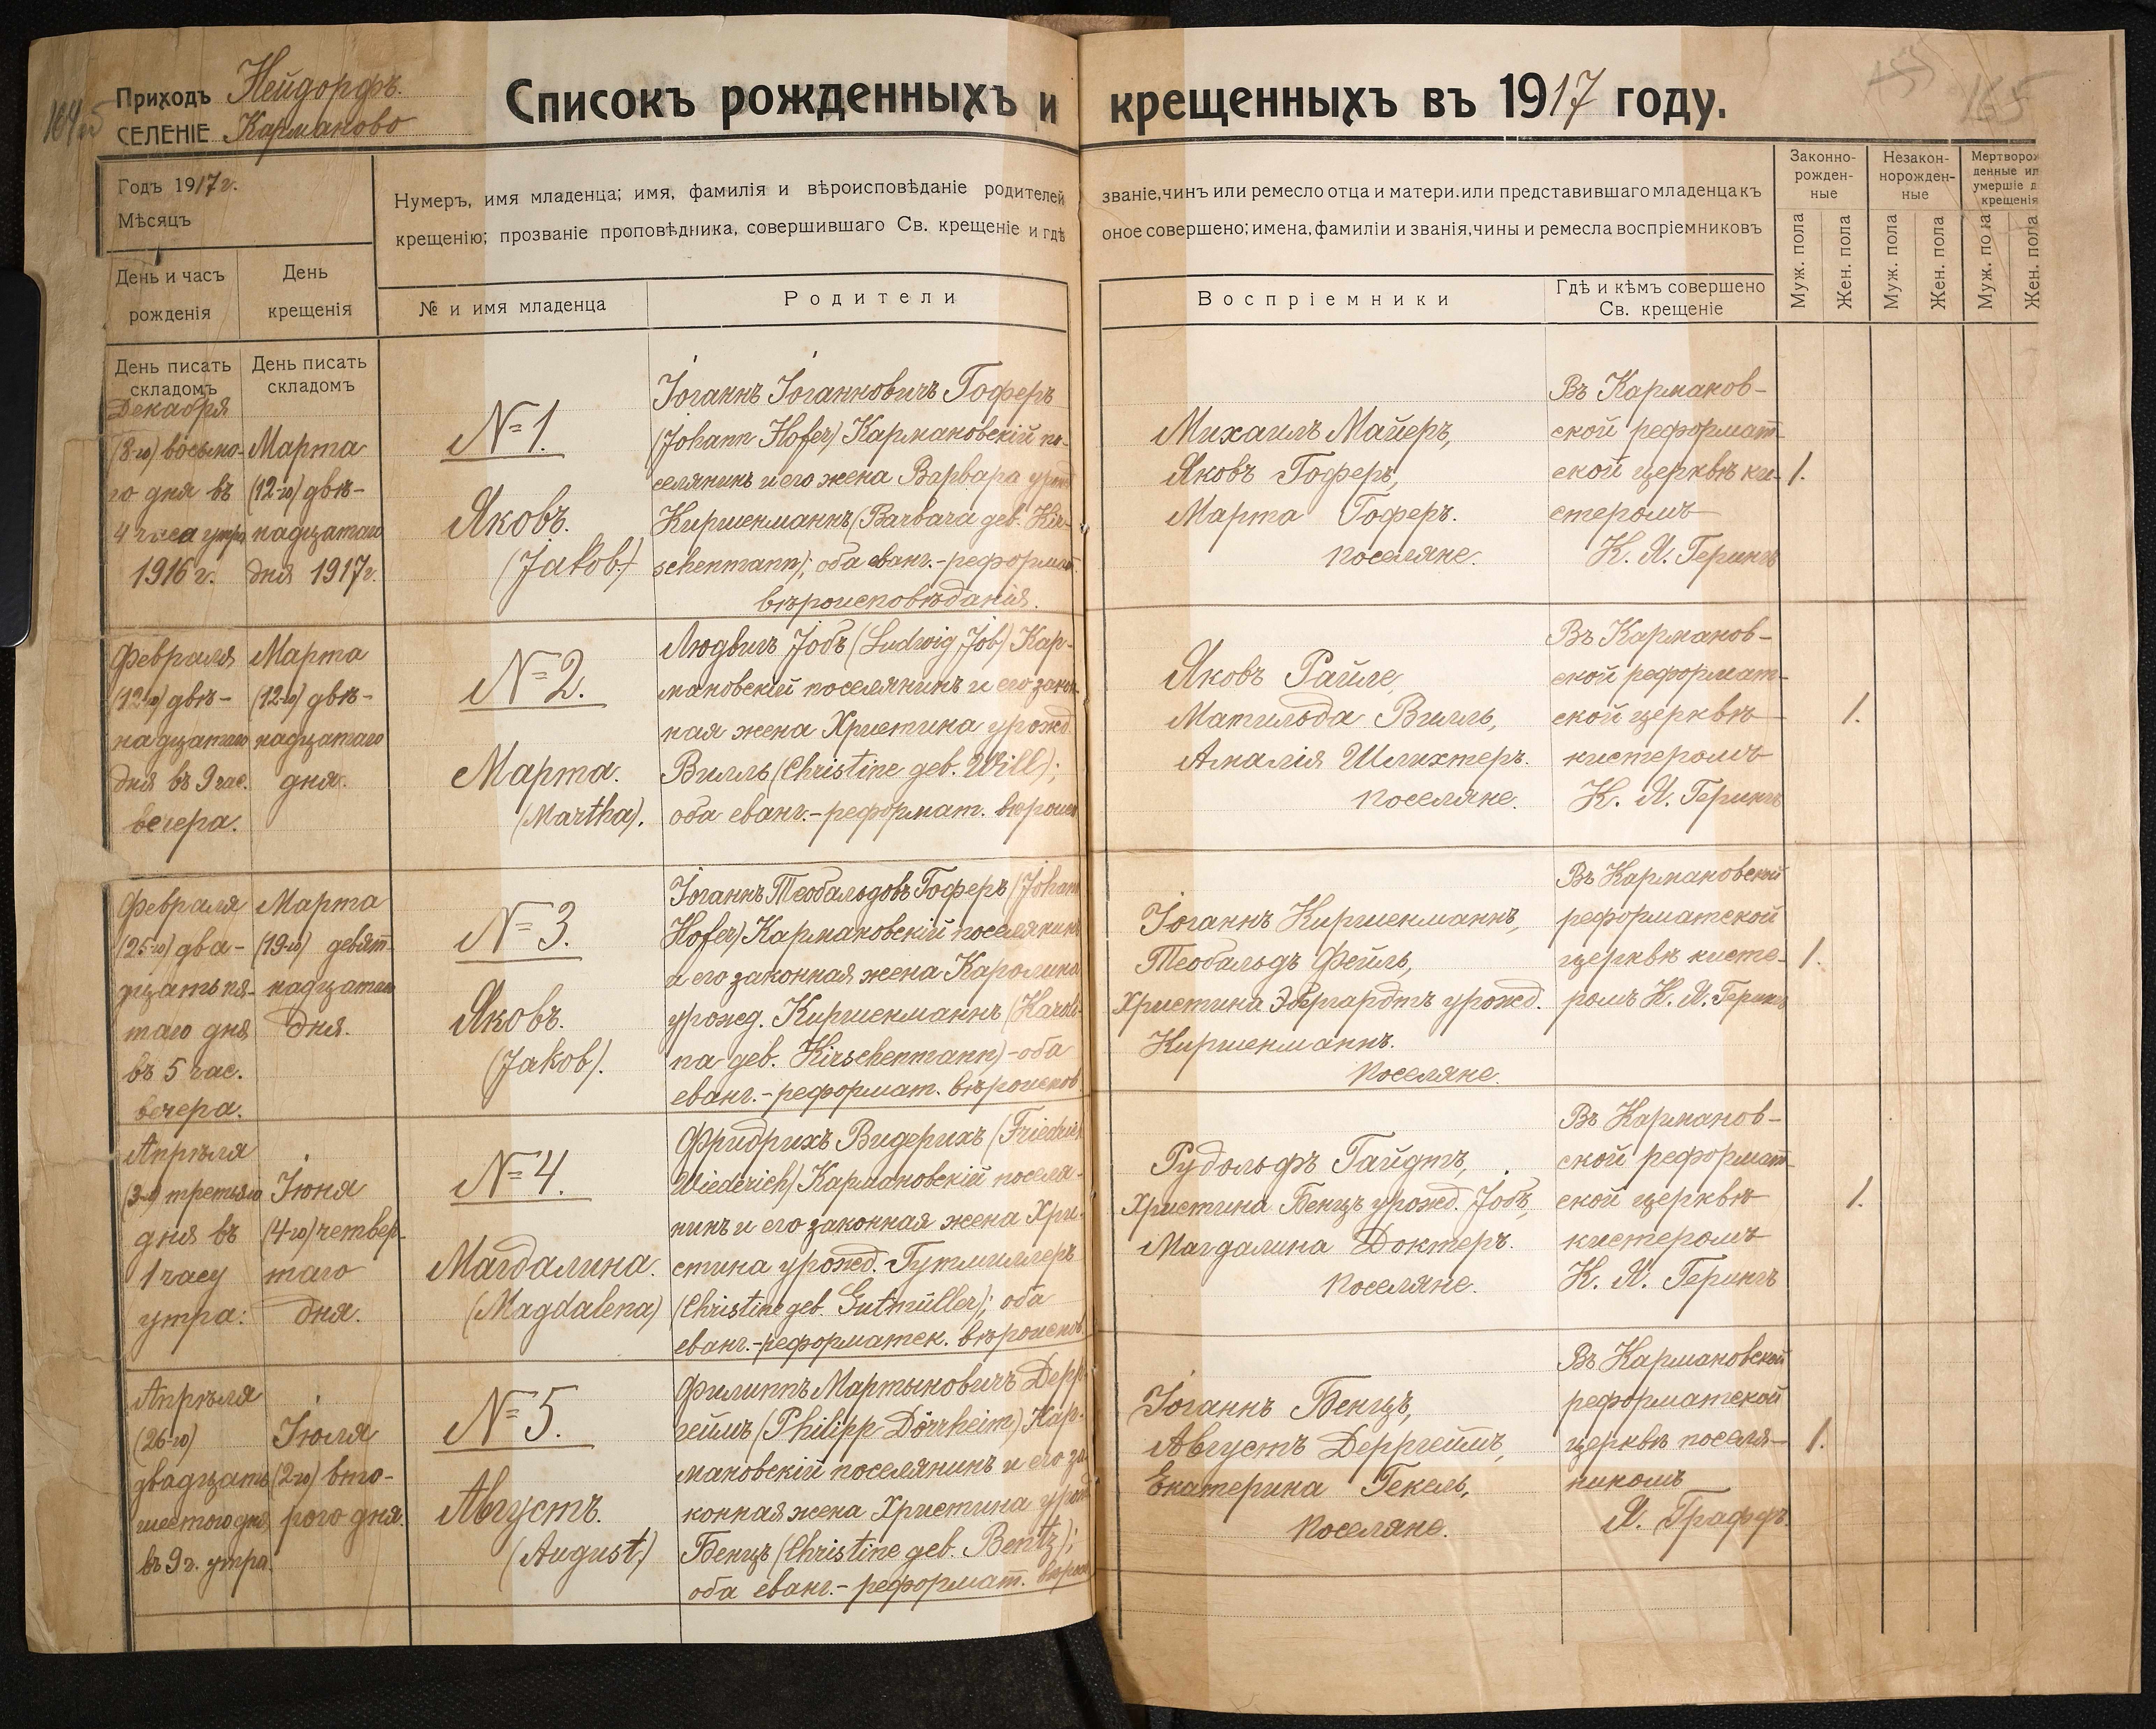 Приходъ Нейдорфъ.
СЕЛЕНІЕ Кармаково
Списокъ рожденныхъ и крещенныхъ въ 1917 году.
165
Годъ 1917 г.
Мѣсяцъ
День и часъ рожденія
День крещенія
Нумеръ, имя младенца; имя, фамилія и вѣроисповѣданіе родителей
крещенію; прозваніе проповѣдника, совершившаго Св. крещеніе и гдѣ
№ и имя младенца
Родители
званіе, чинъ или ремесло отца и матери. или представившаго младенца къ
оное совершено; имена, фамиліи и званія, чины и ремесла воспріемниковъ
Воспріемники
Гдѣ и кѣмъ совершено
Св. крещеніе
Законно-
рожден-
ные
Незакон-
норожден-
ные
Мертворож
денные ил
умершіе д
крещенія
Муж. пола
Жен. пола
Муж. пола
Жен. пола
Муж. по ла
Жен. пола
День писать
складомъ
День писать
складомъ
Декабря
(8-го) восьмо-
го дня въ
4 часа утра
1916 г.
Марта
(12-го) двѣ-
надцатаго
дня 1917 г.
№ 1.
Яковъ.
(Jakob.)
Іоганнъ Іоганновичъ Гоферъ
(Johann Hofer) Кармановскій по-
селянинъ и его жена Варвара урожд
Киршенманнъ (Barbara geb. Kir-
schenmann); оба еванг.-реформат.
вѣроисповѣданія.
Михаилъ Майеръ,
Яковъ Гоферъ,
Марта Гоферъ.
поселяне.
Въ Карманов-
ской реформат-
ской церквѣ ки-
стеромъ
К. Я. Герингъ
1.
Февраля
(12-го) двѣ-
надцатаго
дня въ 9 час.
вечера.
Марта
(12-го) двѣ-
надцатаго
дня.
№ 2.
Марта.
(Martha).
Людвигъ Іобъ (Ludwig Job) Кар-
мановскій поселянинъ и его закон-
ная жена Христина урожд.
Вилль (Christine geb. Will);
оба еванг.-реформат. вѣроисп
Яковъ Райле,
Матильда Вилль,
Амалія Шлихтеръ.
поселяне.
Въ Карманов-
ской реформат-
ской церквѣ
кистеромъ
К. Я. Герингъ
1.
Февраля
(25-го) два-
дцать пя-
таго дня
въ 5 час.
вечера.
Марта
(19-го) девят-
надцатаго
дня.
№ 3.
Яковъ.
(Jakob).
Іоганнъ Теобальдовъ Гоферъ (Johann
Hofer) Кармановскій поселянинъ
и его законная жена Каролина
урожд. Киршенманнъ (Karoli-
na geb. Kirschenmann) - оба
еванг.-реформат. вѣроисповѣ
Іоганнъ Киршенманнъ,
Теобальдъ Фейль,
Христина Эбергардтъ урожд.
Киршенманнъ.
поселяне.
Въ Кармановской
реформатской
церквѣ кисте-
ромъ К. Я. Герингъ
1.
Апрѣля
(3-го) третьяго
дня въ
1 часу
утра:
Іюня
(4-го) четвер-
таго
дня.
№ 4.
Магдалина.
(Magdalena)
Фридрихъ Видерихъ (Friedrich
Wiederich) Кармановскій поселя-
нинъ и его законная жена Хри-
стина урожд. Гутмиллеръ
(Christine geb. Gutmüller); оба
еванг.-реформатск. вѣроиспов.
Рудольфъ Гайдтъ,
Христина Бенцъ урожд. Іобъ,
Магдалина Доктеръ.
поселяне.
Въ Карманов-
ской реформат-
ской церквѣ
кистеромъ
К. Я. Герингъ
1.
Апрѣля
(26-го)
двадцать
шестого дня
въ 9 ч. утра.
Іюля
(2-го) вто-
рого дня.
№ 5.
Августъ.
(August.)
Филиппъ Мартыновичъ Дерр-
геймъ (Philipp Dörrheim) Кар-
мановскій поселянинъ и его за-
конная жена Христина урожд
Бенцъ (Christine geb. Bentz);
оба еванг.-реформат. вѣроис
Іоганнъ Бенцъ,
Августъ Дерргеймъ,
Екатерина Гекель,
поселяне.
Въ Кармановской
реформатской
церквѣ поселя-
никомъ
Я. Графъ.
1.